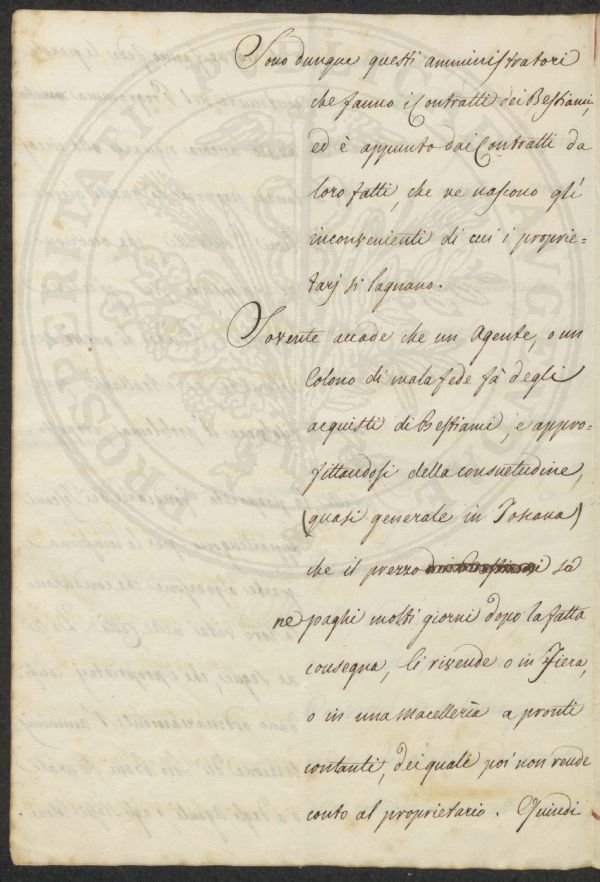 Sono dunque questi amministratori
che fanno i Contratti dei Bestiami,
ed è appunto dai Contratti da
loro fatti, che ne nascono gl'
inconvenienti di cui i proprie=
tarj si lagnano.
Sovente accade che un Agente, o un
Colono di mala fede fà degli
acquisti di Bestiami, e appro-
fittandosi della consuetudine,
(quasi generale in Toscana)
che il prezzo se
ne paghi molti giorni dopo la fatta
consegna, li rivende o in Fiera,
o in una macellerìa a pronti
contanti, dei quali poi non rende
conto al proprietario. Quindi